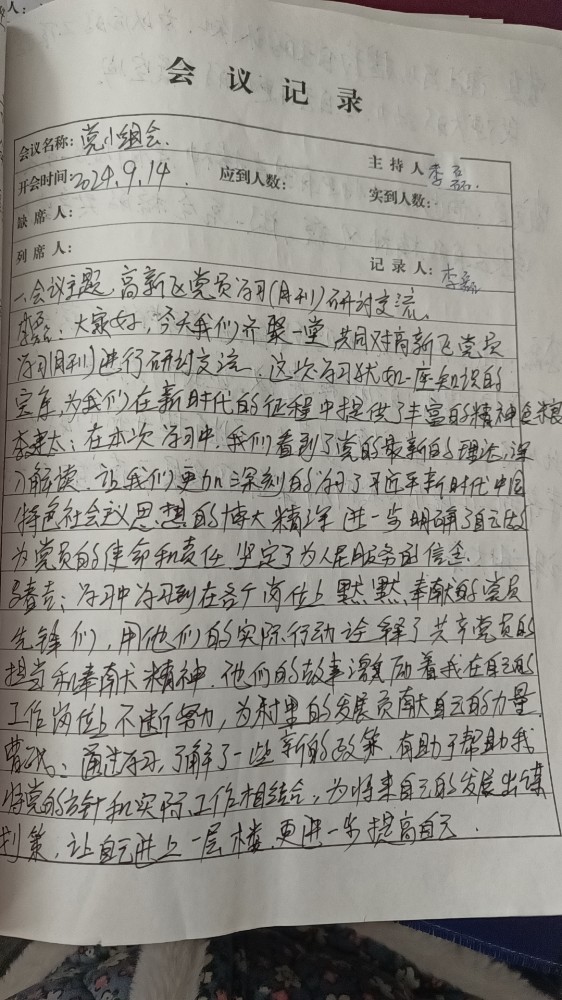 会议记录
会议名称：党小组会. 主持人 李磊.
开会时间：2024.9.14. 应到人数： 实到人数：
缺席人：
列席人： 记录人：李磊
一、会议主题，高新区党员学习(月刊)研讨交流、
李磊：大家好，今天我们齐聚一堂，共同对高新区党员
学习(月刊)进行研讨交流，这次学习犹如一座知识的
宝库，为我们在新时代的征程中提供了丰富的精神食粮
李建太：在本次学习中，我们看到了党的最新的理论，深
入解读，让我们更加深刻的学习了习近平新时代中国
特色社会主义思想的博大精深 进一步明确了自己作
为党员的使命和责任，坚定了为人民服务的信念.
学习中学习到在各个岗位上默默奉献的党员
先锋们，用他们的实际行动诠释了共产党员的
担当和奉献精神，他们的故事激励着我在自己的
工作岗位上不断努力，为村里的发展贡献自己的力量.
通过学习，了解了一些新的政策，有助于帮助我
将党的方针和实际工作相结合，为将来自己的发展出谋
划策，让自己进上一层楼，更进一步提高自己.